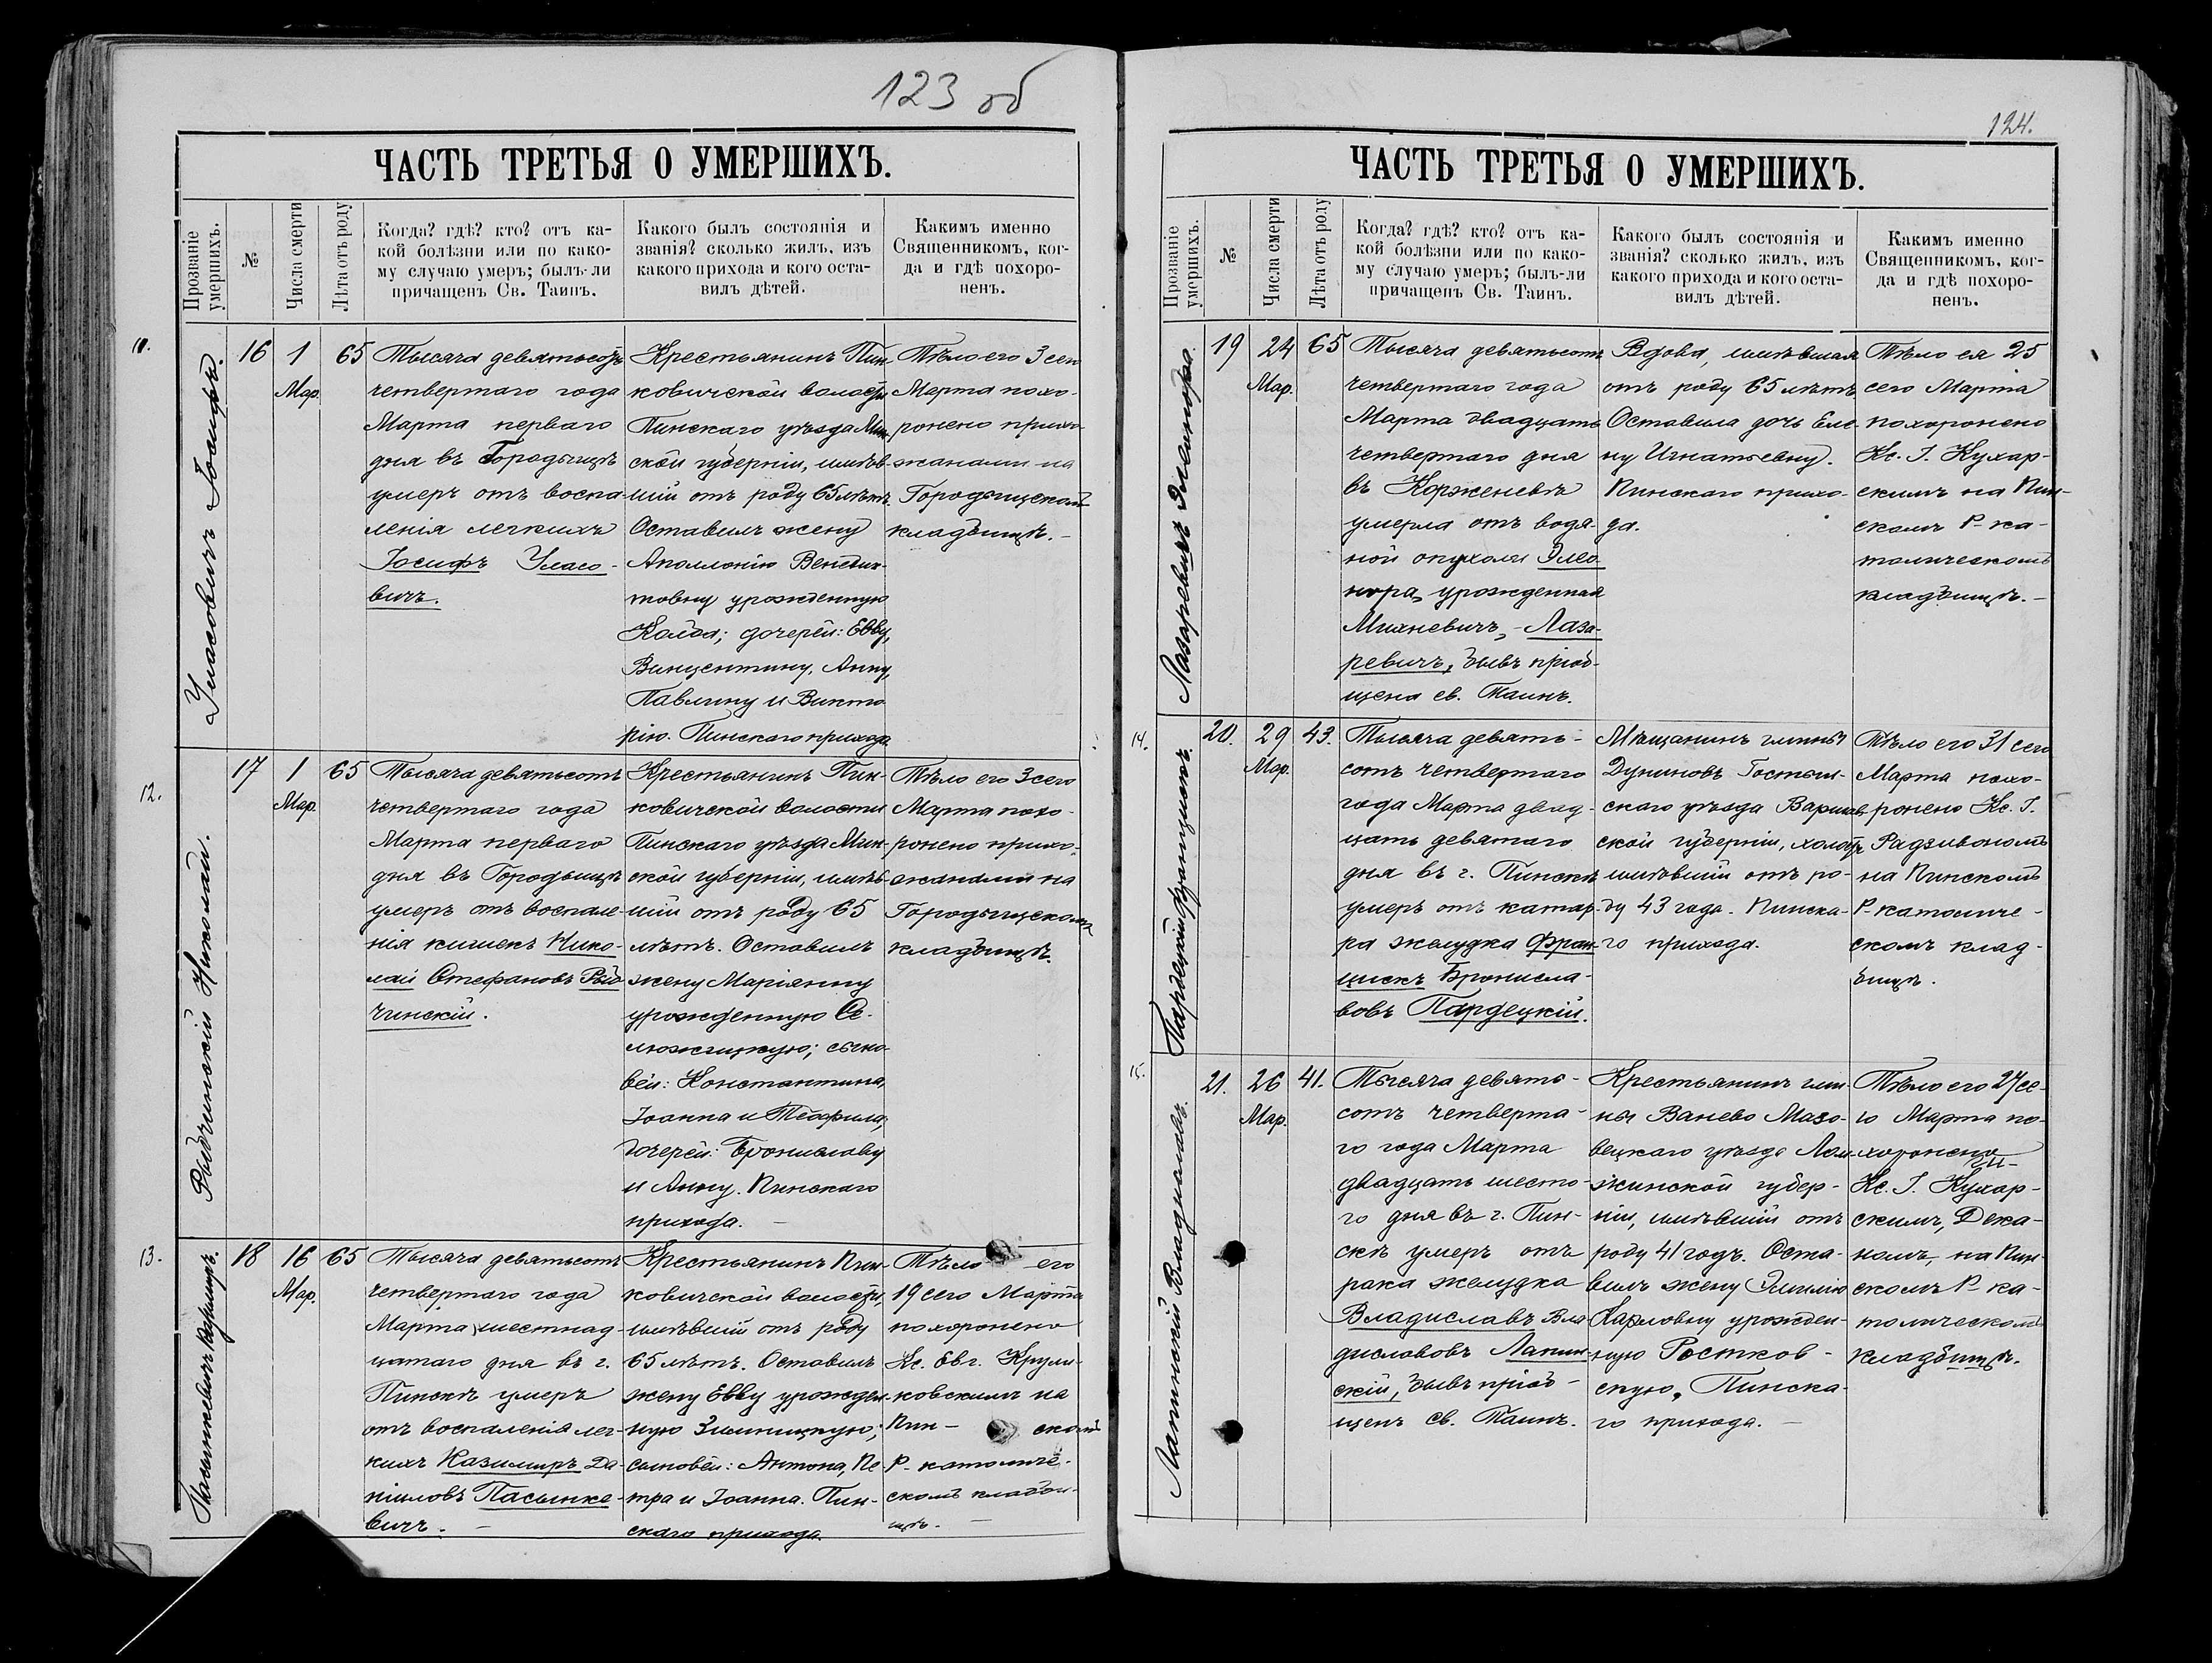 123 об
ЧАСТЬ ТРЕТЬЯ О УМЕРШИХЪ.
Прозваніе умершихъ.
№
Числа смерти
Лѣта отъ роду
Когда? гдѣ? кто? отъ ка-
кой болѣзни или по како-
му случаю умеръ; былъ-ли
причащенъ Св. Таинъ.
Какого былъ состоянія и
званія? сколько жилъ, изъ
какого прихода и кого оста-
вилъ дѣтей.
Какимъ именно
Священникомъ, ког-
да и гдѣ похоро-
ненъ.
11.
Уласовичъ Іосифъ.
16
1
Мар.
65
Тысяча девятьсотъ
четвертаго года
Марта перваго
дня въ Городыщѣ
умеръ отъ воспа-
ленія легкихъ
Іосифъ Уласо-
вичъ.
Крестьянинъ Пин-
ковичской волости
Пинскаго уѣзда Мин-
ской губерніи, имѣв-
шій отъ роду 65 лѣтъ.
Оставилъ жену
Аполлонію Венедик-
товну урожденную
дочерей: Евву,
Винцентину, Анну,
Павлину и Викто-
рію. Пинскаго прихода.
Тѣло его 3 сего
Марта похо-
ронено прихо-
жанами на
Городыщскомъ
кладбищѣ. –
12.
Рыдчинскій Николай.
17
1
Мар.
65
Тысяча девятьсотъ
четвертаго года
Марта перваго
дня въ Городыщѣ
умеръ отъ воспале-
нія кишекъ Нико-
лай Стефановъ Рыд-
чинскій.
Крестьянинъ Пин-
ковичской волости
Пинскаго уѣзда Мин-
ской губерніи, имѣв-
шій отъ роду 65
лѣтъ. Оставилъ
жену Маріянну
урожденную Се-
люжицкую; сыно-
вей: Константина,
Іоанна и Теофила,
дочерей: Брониславу
и Анну. Пинскаго
прихода. –
Тѣло его 3 сего
Марта похо-
ронено прихо-
жанами на
Городыщскомъ
кладбищѣ.
13.
Пасынкевичъ Казиміръ.
18
16
Мар.
65
Тысяча девятьсотъ
четвертаго года
Марта шестнад-
цатаго дня въ г.
Пинскѣ умеръ
отъ воспаленія лег-
кихъ Казиміръ Да-
ніиловъ Пасынке-
вичъ. –
Крестьянинъ Пин-
ковичской волости,
имѣвшій отъ роду
65 лѣтъ. Оставилъ
жену Евву урожден-
ную Зминицкую;
сыновей: Антона, Пе-
тра и Іоанна. Пин-
скаго прихода.
Тѣло его
19 сего Марта
похоронено
Кс. Евг. Крули-
ковскимъ на
Пин- скомъ
Р-католиче-
скомъ кладби-
щѣ. –
124.
ЧАСТЬ ТРЕТЬЯ О УМЕРШИХЪ.
Прозваніе умершихъ.
№
Числа смерти
Лѣта отъ роду
Когда? гдѣ? кто? отъ ка-
кой болѣзни или по како-
му случаю умеръ; былъ-ли
причащенъ Св. Таинъ.
Какого былъ состоянія и
званія? сколько жилъ, изъ
какого прихода и кого оста-
вилъ дѣтей.
Какимъ именно
Священникомъ, ког-
да и гдѣ похоро-
ненъ.
Лазаревичъ Элеонора.
19
24
Мар.
65
Тысяча девятьсотъ
четвертаго года
Марта двадцать
четвертаго дня
въ Корженевѣ
умерла отъ водя-
ной опухоли Элео-
нора, урожденная
Михневичъ, – Лаза-
ревичъ, бывъ пріоб-
щена св. Таинъ.
Вдова, имѣвшая
отъ роду 65 лѣтъ
Оставила дочь Еле-
ну Игнатьевну.
Пинскаго прихо-
да.
Тѣло ея 25
сего Марта
похоронено
Кс. І. Кухар-
скимъ на Пин-
скомъ Р-ка-
толическомъ
кладбищѣ. –
14.
Пардецкій Францискъ.
20.
29
Мар.
43.
Тысяча девять-
сотъ четвертаго
года Марта двад-
цать девятаго
дня въ г. Пинскѣ
умеръ отъ катар-
ра желудка Фран-
цискъ Брониславовъ
Пардецкій.
Мѣщанинъ гмины
Дуниновъ Гостын-
скаго уѣзда Варшав-
ской губерніи, холостъ,
имѣвшій отъ ро-
ду 43 года. Пинска-
го прихода.
Тѣло его 31 сего
Марта похо-
ронено Кс. І.
Радзивономъ
на Пинскомъ
Р-католиче-
скомъ клад-
бищѣ.
15.
Лапинскій Владиславъ.
21.
26
Мар.
41.
Тысяча девять-
сотъ четверта-
го года Марта
двадцать шесто-
го дня въ г. Пин-
скѣ умеръ отъ
рака желудка
Владиславъ Вла-
диславовъ Лапин-
скій, бывъ пріоб-
щенъ св. Таинъ.
Крестьянинъ гми-
ны Ванево Мазо-
вецкаго уѣзда Лом-
жинской губер-
ніи, имѣвшій отъ
роду 41 годъ. Оста-
вилъ жену Эмилію
Карловну урожден-
ную Ростков-
скую, Пинска-
го прихода. –
Тѣло его 27 се-
го Марта по-
хоронено
Кс. І. Кухар-
скимъ, Дека-
номъ, на Пин-
скомъ Р-ка-
толическомъ
кладбищѣ.